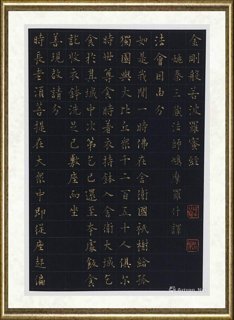 金剛般若波羅蜜經
姚秦三藏法師鳩摩羅什譯
法會因由分
如是我聞一時佛在舍衛國祇樹給孤
獨園與大比丘眾千二百五十人俱爾
時世尊食時著衣持鉢入舍衛大城乞
食於其城中次第乞已還至本處飯食
訖收衣鉢洗足已敷座而坐
善現啟請分
時長老須菩提在大眾中即從座起偏